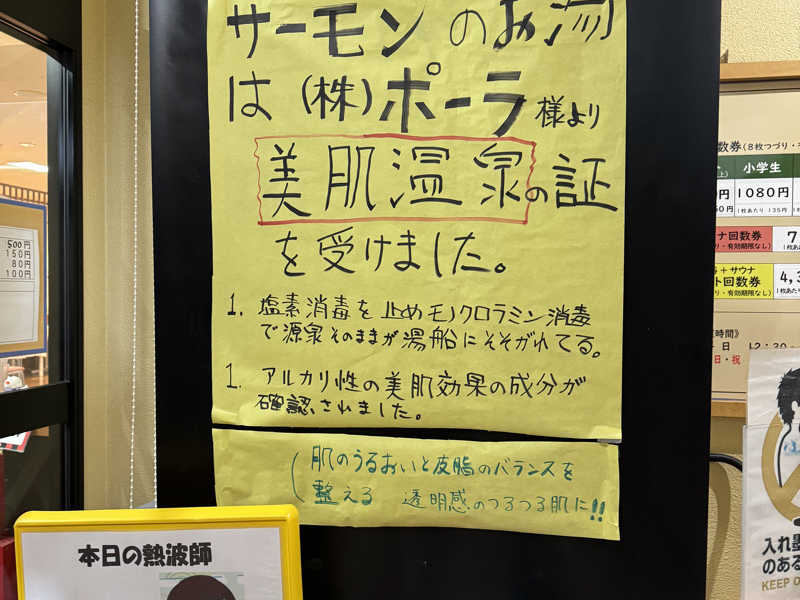 サーモンのお湯
は(株)ポーラ様より
美肌温泉の証
を受けました。
1. 塩素消毒を止めモノクロラミン消毒
で源泉そのままが湯船にそそがれてる。
1. アルカリ性の美肌効果の成分が
確認されました。
(肌のうるおいと皮脂のバランスを
整える 透明感のつるつる肌に!!
本日の熱波師
500円
150円
80円
100円
数券(8枚つづり・
小学生
1080円
1枚あたり 135円
ナ回数券
・有効期限なし)
+サウナ
ト回数券
・有効期限なし)
4,3
時間》
日 12:30
日・祝
入れ墨
のある
KEEP